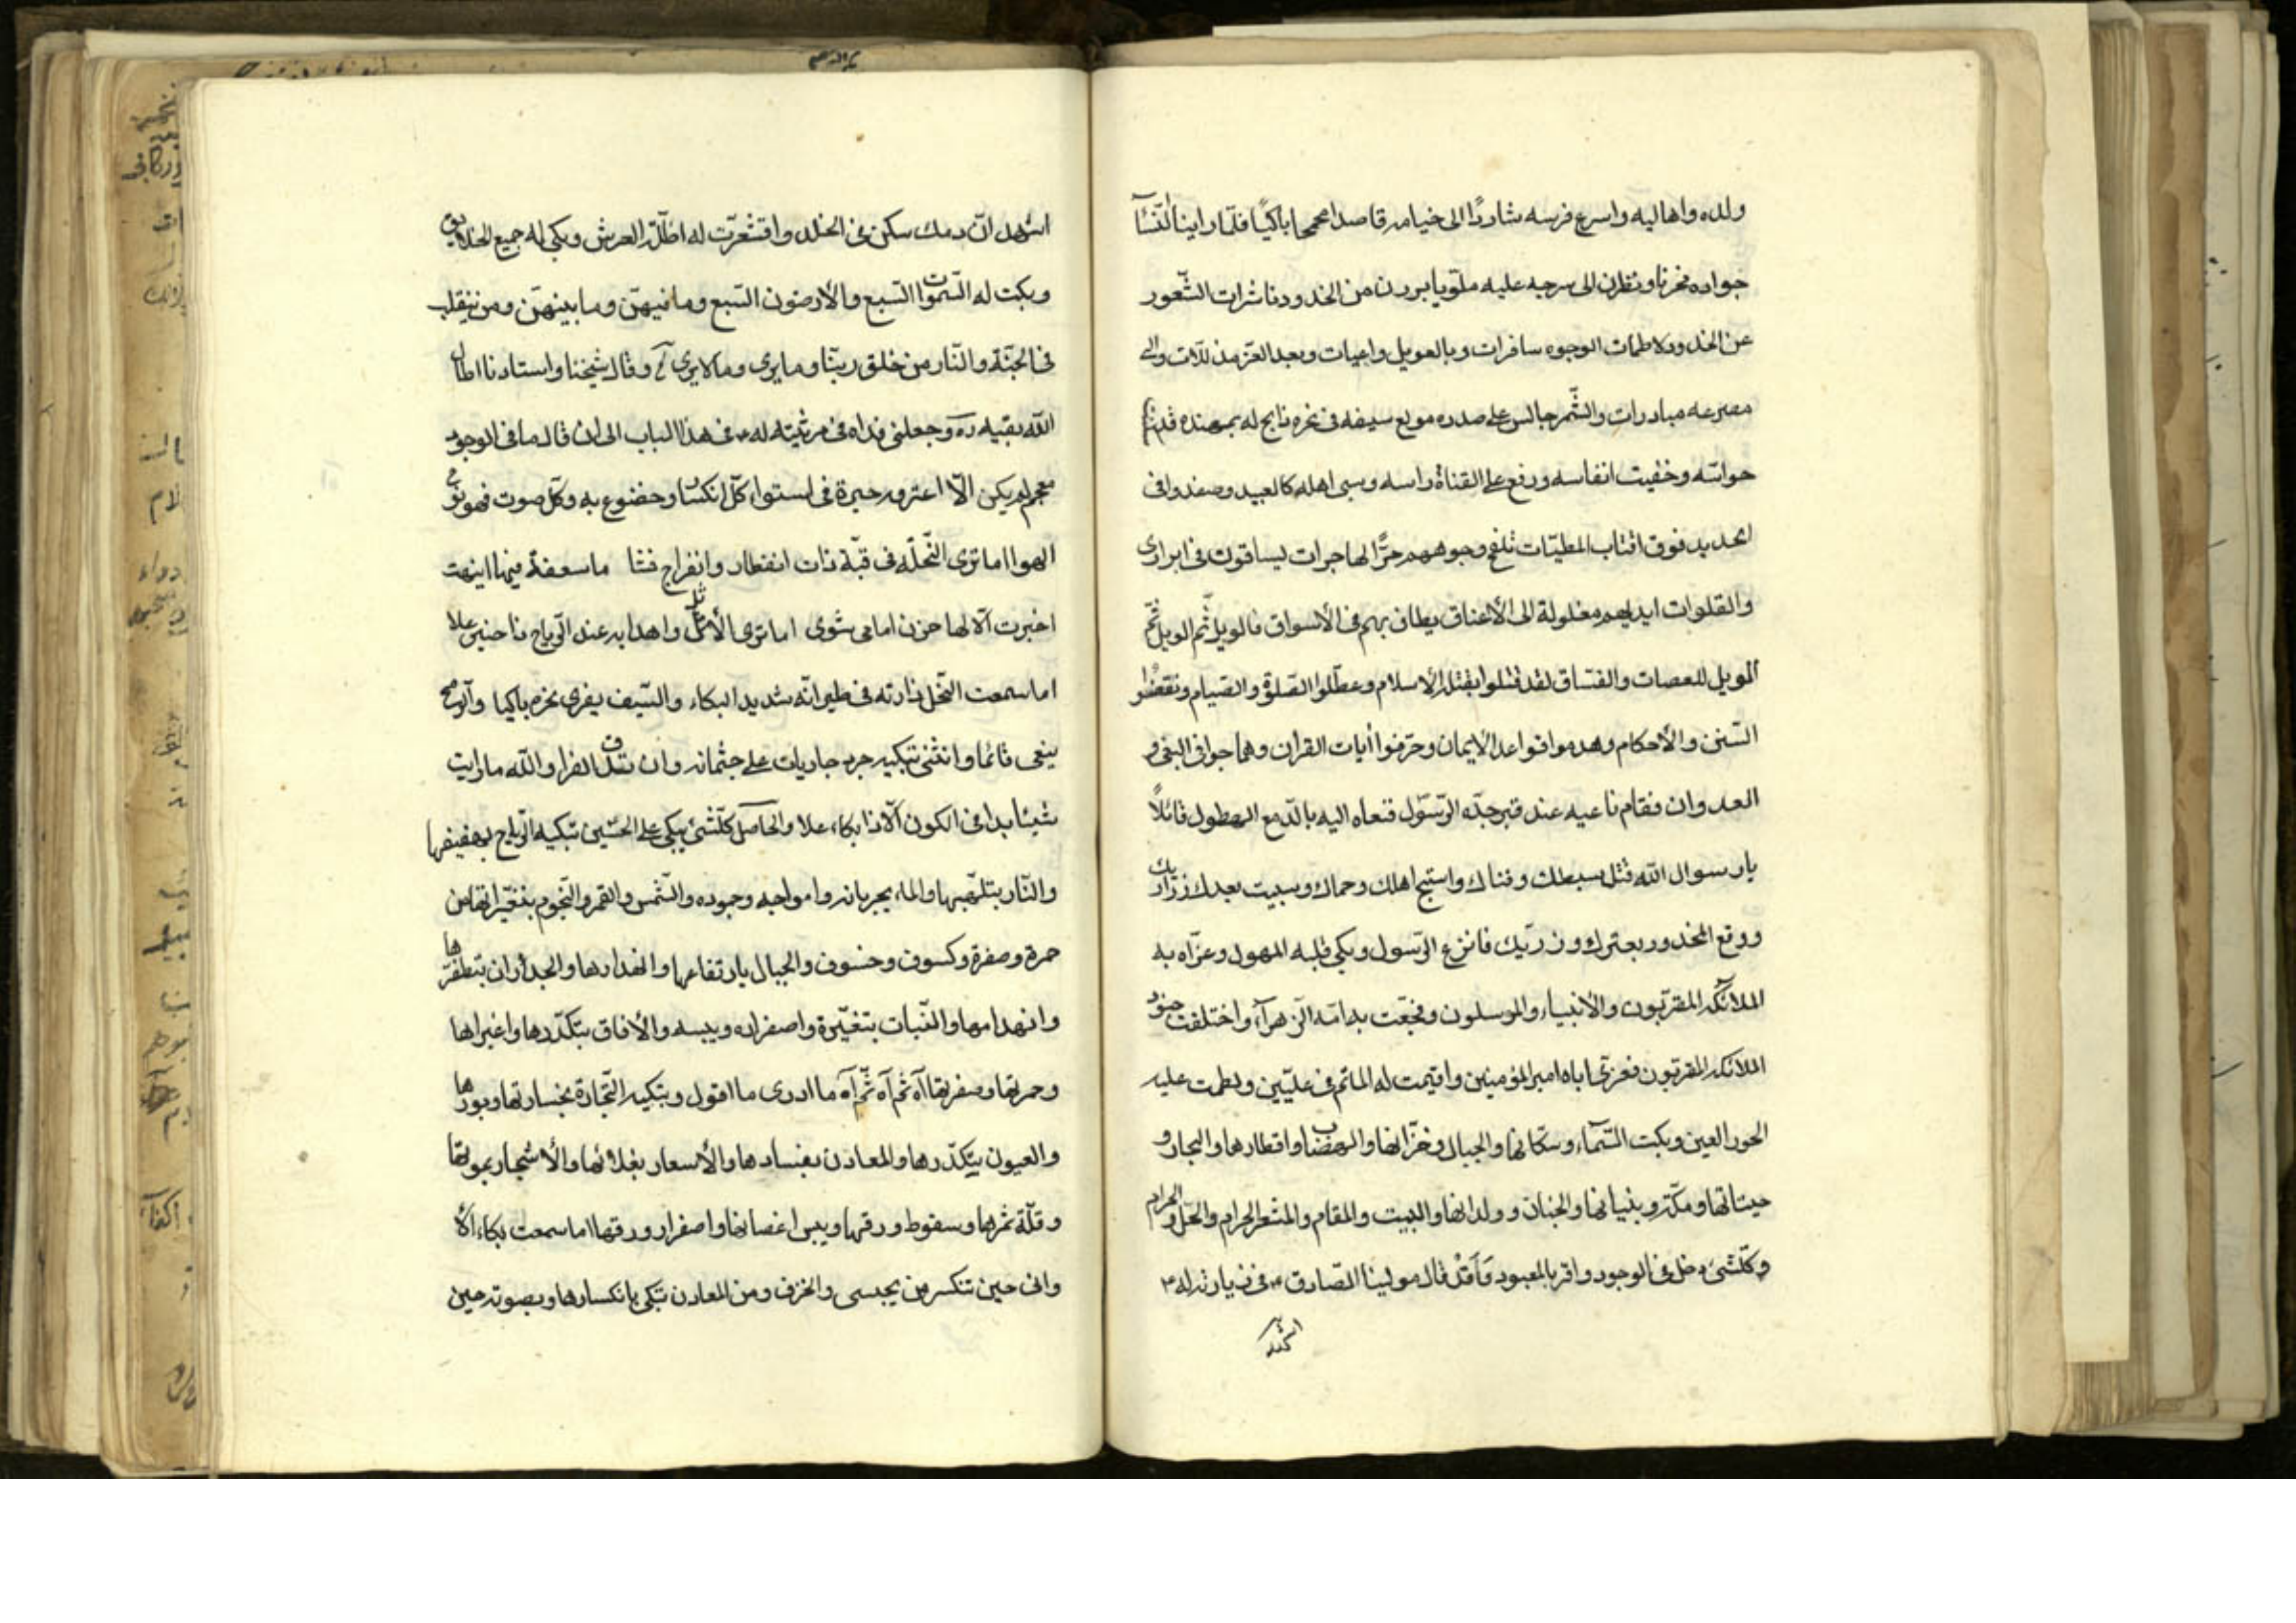 ولده واهاليه واسرع فرسه شاردًا الى خيامه قاصدا محمحما باكيًا فلمّا راين النّسآء
جواده مخزيا ونظرن الى سرجه عليه ملويا برزن من الخدود ناشرات الشّعور
عن الخدود لاطمات الوجوه سافرات وبالعويل واعيات وبعد العز مذللات والى
مصرعه مبادرات والشّمر جالس على صدره مولع سيفه فى نحره ذابح له بمهنده قد
حواسّه وخفيت انفاسه ورفع على القناة راسه وسبى اهله كالعبيد وصفدوا فى
الحديد فوق اقتاب المطيّات تلفح وجوههم حرّ الهاجرات يساقون فى البرارى
والفلوات ايديهم مغلولة الى الأعناق يطاف بهم فى الأسواق فالويل ثّم الويل ثّم
الويل للعصات والفسّاق لقد قتلوا بقتله الأسلام وعطّلوا الصّلوة والصّيام ونقضوا
السّنن والأحكام وهدموا قواعد الايمان وحرّفوا أيات القران وهملجوا فى البغى و
العدوان فقام ناعيه عند قبر جدّه الرّسول فنعاه اليه بالدّمع الهطول قائلاً
يارسوال الله قتل سبطك وفتاك واستبيح اهلك وحماك وسبيت بعدك ذراريك
ووقع المحذور بعترتك وذرّيك فانزعج الرّسول وبكى قلبه المهول وعزّاه به
الملائكة المقرّبون والأنبياء والمرسلون وفجعت به امّه الزّهرآء واختلفت جنود
الملائكة المقربّون فعزى اباه امير المؤمنين واقيمت له الماتم فى علّيّين ولطمت عليه
الحور العين وبكت السّمآء وسكّانها والجبال وخزّانها والهضاب واقطارها والبحار و
حيتانها ومكّة وبنيانها والجنان وولدانها والبيت والمقام والمشعر الحرام والحلّ والحرام
وكلّشئ دخل فى الوجود واقر بالمعبود قال مولينا الصّادق ع فى زيارته له ع
اشهد
اشهد انّ دمك سكن فى الخلد واقشعرّت له اظلّة العرش وبكى له جميع الخلايق
وبكت له السّموات السّبع والأرضون السّبع ومافيهنّ ومابينهنّ ومن ينقلب
فى الجنّة والنّار من خلق ربّنا ومايرى ومالايرى وقال شيخنا واستادنا اطال
الله بقيه وجعلنى فداه فى مرثيته له ع فى هذا الباب الى ان قال ما فى الوجود
معجم لم يكن الّا اعتره حيرة فى استواء كلّ انكسار وخضوع به وكلّ صوت فهو نوح
الهوا اما ترى النّخله فى قبّة ذات انفطار وانفراج فشا ماسعفة فيها اينهت
اخبرت الّا لها حزن امامى شوى اما ترى الأثل واهدابه عند الرّياح ذا حنين علا
اما سمعت النّخل ذا رنه فى طيرانه شديد البكاء والسّيف يفرى نحره باكيا والرّمح
ينعى قائما وانثنى تبكيه جرد جاريات على جثمانه وان تدق القرا والله مارايت
شيئا بدا فى الكون الّا ذا بكاء علا والحاصل كلّشئ يبكى على الحسّين تبكيه الرّياح بهفيفها
والنّار بتلهّبها والماء بجريانه وامواجه وجموده والشّمس والقمر والنّجوم بتغيّراتها من
حمرة وصفرة وكسوف وخسوف والجبال بارتفاعها وانهدارها والجدران بتفطّرها
وانهدامها والنّبات بتغيّره واصفراره ويبسه والأفاق بتكدّرها واغبرارها
وحمرتها وصفرتها اآه ثّم آه ثّم آه ما ادرى ما اقول وبتكيه التّجارة بخسارتها وبورها
والعيون بتكدّرها والمعادن بفسادها والأسعار بغلائها والأشجار بموتها
وقلّة ثمرها وسقوط ورقها ويبس اغصانها واصفرار ورقها اما سمعت بكاء الأ
وانى حين تنكسر من يجبسى والخزف ومن المعادن تبكى بانكسارها وبصوته حين